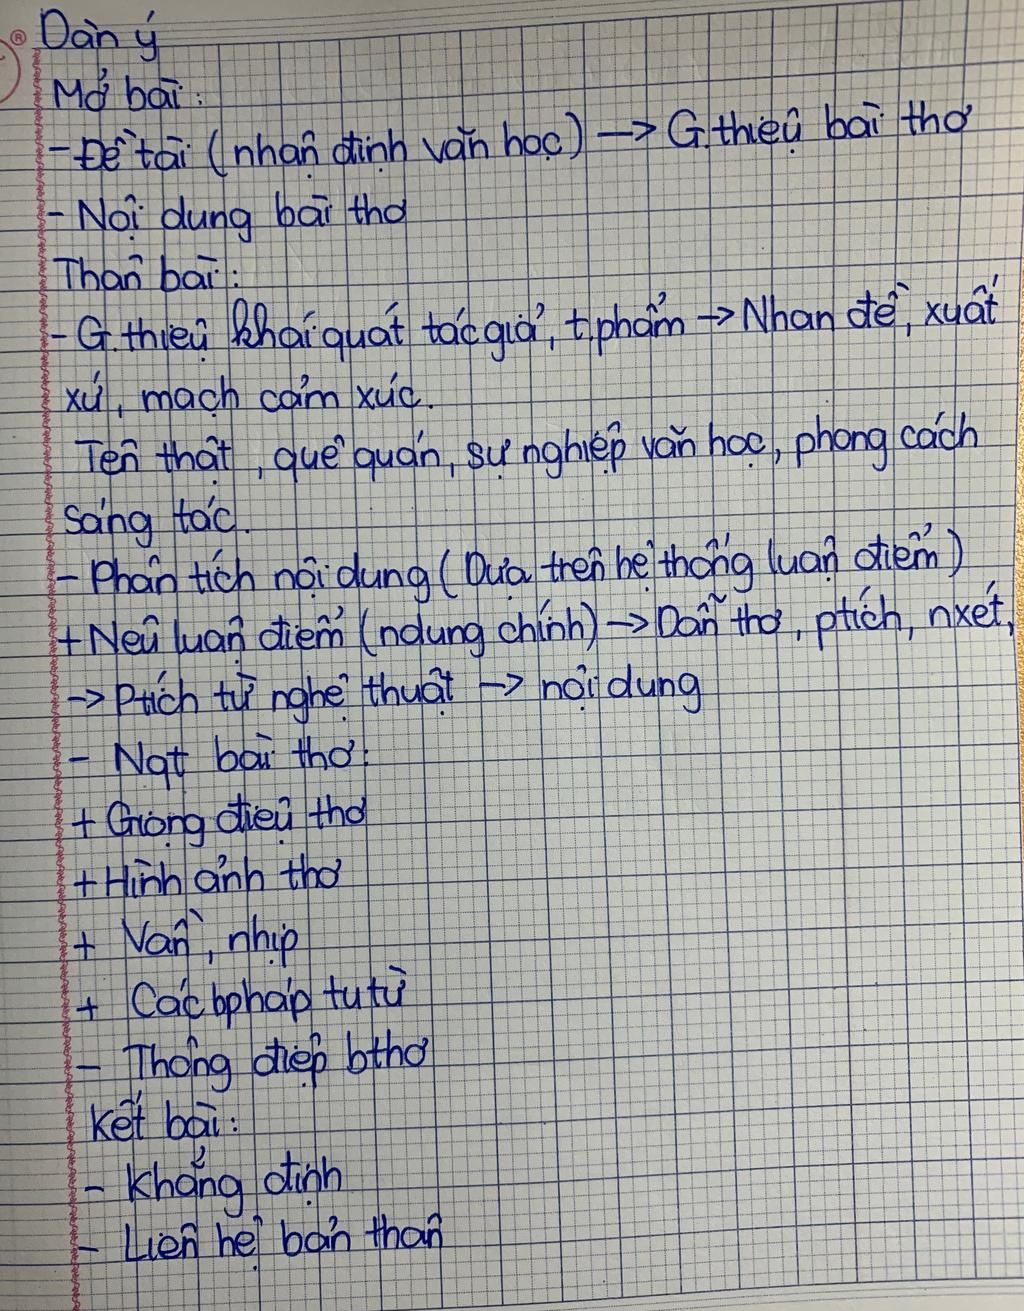 Dàn ý
Mở bài:
- Đề tài (nhận định văn học) → G.thiệu bài thơ
- Nội dung bài thơ
Thân bài:
- G.thiệu khái quát tác giả, t.phẩm → Nhan đề, xuất
xứ, mạch cảm xúc.
Tên thật, quê quán, sự nghiệp văn học, phong cách
sáng tác.
- Phân tích nội dung (Dựa trên hệ thống luận điểm)
+ Nêu luận điểm (ndung chính) → Dẫn thơ, ptích, nxét,
→ Ptích từ nghệ thuật → nội dung
- Nqt bài thơ:
+ Giọng điệu thơ
+ Hình ảnh thơ
+ Vần, nhịp
+ Các bpháp tu từ
- Thông điệp bthơ
Kết bài:
- Khẳng định
- Liên hệ bản thân